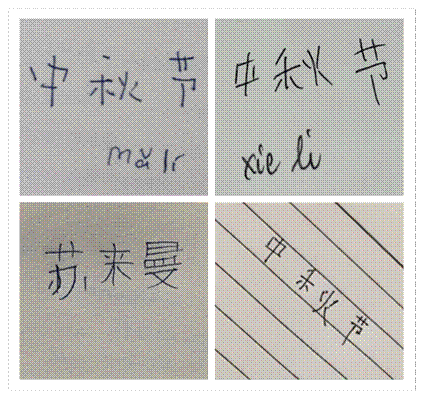 中秋节
mǎ li
中秋节
xie li
苏来曼
中秋节